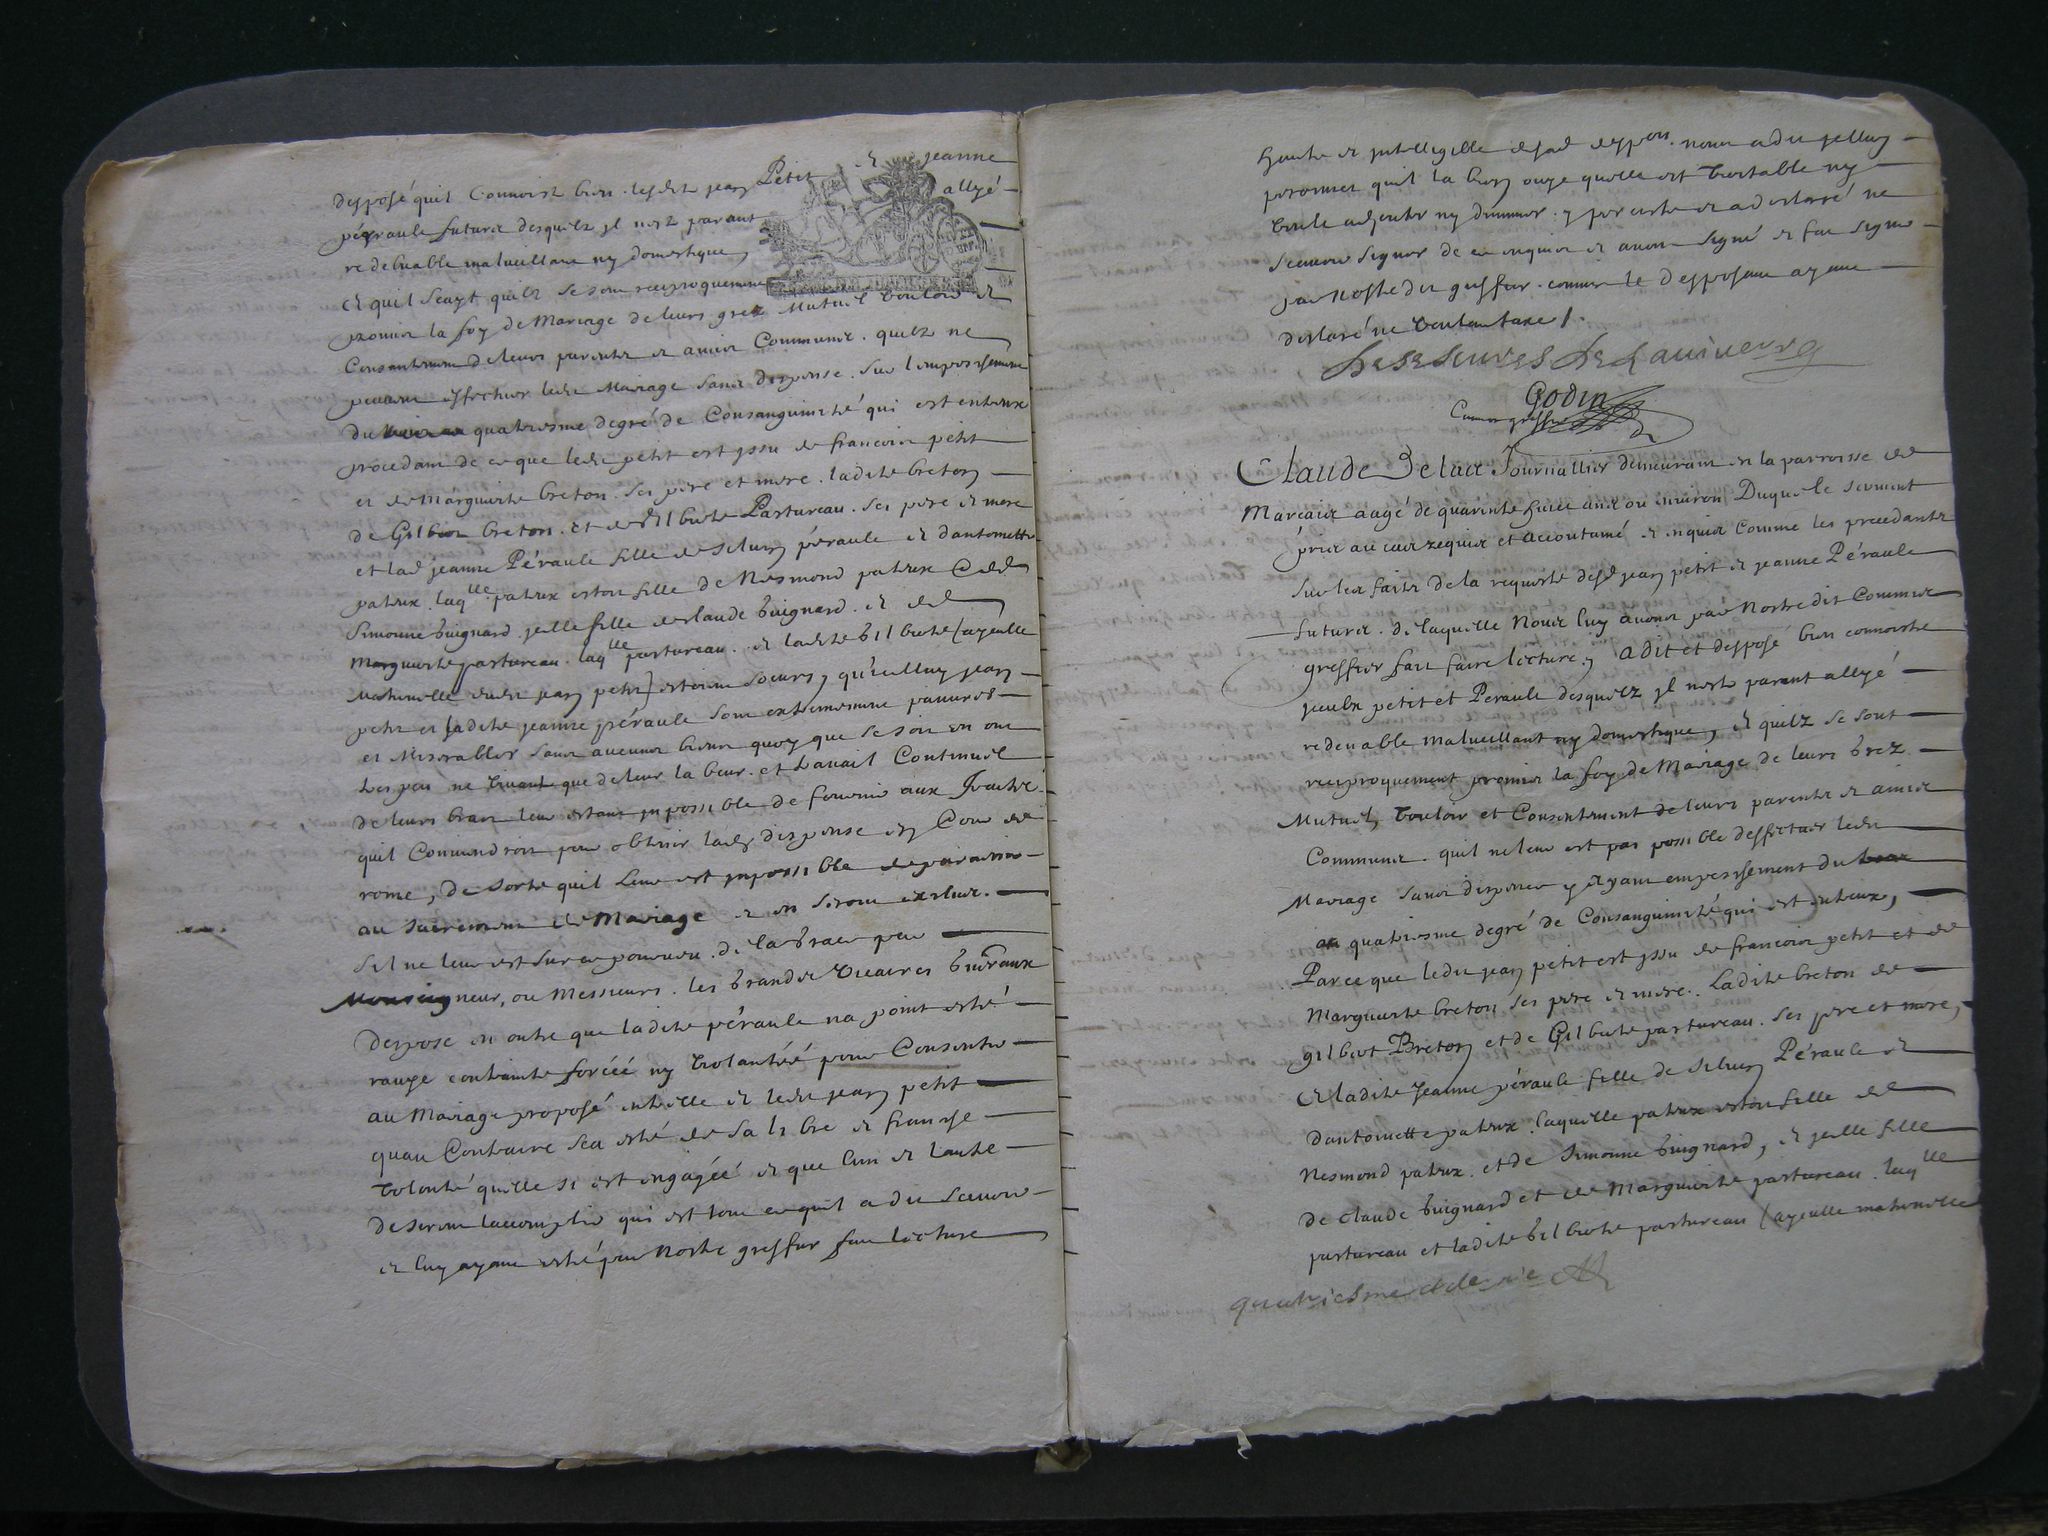 desposé quil Connoist bien lesdit jean Petit et jeanne
péraule futurs desquelz jl nest parant allyé
redebuable malueillant ny domestique,
et quil scayt quilz se sont reciproquement
promis la foy de Mariage de leurs grez Mutuel vouloir et
Consantement de leurs parents et amis Communs. quilz ne
peuuent effectuer ledit Mariage sans dispense. sur lempeschement
du quatriesme degré de Consanguinité qui est entreux
procedant de ce que ledit petit est yssu de francois petit
et de Marguerite breton. ses pere et mere. ladite breton
de Gilbert breton. et de Gilberte Partureau. ses pere et mere
et lad jeanne Péraule fille de Siluin péraule et dantoinette
patrix. laqlle patrix estoit fille de Nesmond patrix et de
Simonne buignard. jcelle fille de claude buignard. et de
Marguerite partureau. laqlle partureau. et ladite Gilberte (ayeulle
Maternelle dudit jean petit) estoient soeurs, qu'icelluy jean
petit et ladite jeanne péraule sont extremement pauures
et Miserables sans aucuns biens quoy que ce soit en ont
de leurs bras leur estant jnpossible de fournir aux
quil Conuiendroit pour obtenir lade dispense en Cour de
rome, de sorte quil Leur est jnpossible de paruenir
au sacrement de Mariage et en seront exclus.
sil ne leur est sur ce pourueu. de la grace par
Monseigneur, ou Messieurs. les Grands Vicaires Generaux
Despose en outre que ladite péraule na point esté
rauye contrainte forcéé ny violantéé pour Consentir
au Mariage proposé entrelle et ledit jean petit
quau Contraire sea esté de sa libre et franche
volonté quelle si est engagéé et que lun et lautre
desirent laccomplir qui est tout ce quil a dit scauoir
et luy ayant esté par Nostre greffier fait lecture
haute et jntelligible desad despon. nous a dit jelluy
persister quil la bien ouye quelle est veritable ny
veult adjouter ny diminuer. y persiste et a desclaré ne
scauoir signer de ce enquis et auons signé et fait signer
par Nostredit greffier. commis le desposant ayant
desclaré ne vouloir taxe /.
Godin
Commis greffier
Claude Delact Journallier demeurant en la parroisse de
Marcais aagé de quarente huict ans ou enuiron Duquel le serment
pris au cas requis et accoutumé et enquis comme les precedants
sur les faits de la requeste desd jean petit et jeanne Péraule
futurs. de laquelle Nous luy auons par Nostre dit Commis
greffier fait faire lecture, a dit et desposé bien connoistre
jceulx petit et Peraule desquelz jl nest parant allyé
redeuable malueillant ny domestique, et quilz se sont
reciproquement promis la foy de Mariage de leurs grez
Mutuel vouloir et Consentement de leurs parents et amis
Communs. quil ne leur est pas possible deffectuer ledit
Mariage sans dispense y ayant empeschement du
au quatriesme degré de Consanguinité qui est entreux,
Parce que ledit jean petit est yssu de francois petit et de
Marguerite breton ses pere et mere. Ladite breton de
gilbert Breton et de Gilberte partureau. ses pere et mere,
Et ladite Jeanne péraule fille de Siluin Péraule et
dantoinette patrix. laquelle patrix estoit fille de
Nesmond patrix. et de Simonne buignard, et jcelle fille
de claude buignard et de Marguerite partureau. laqlle
partureau et ladite Gilberte partureau (ayeulle maternelle